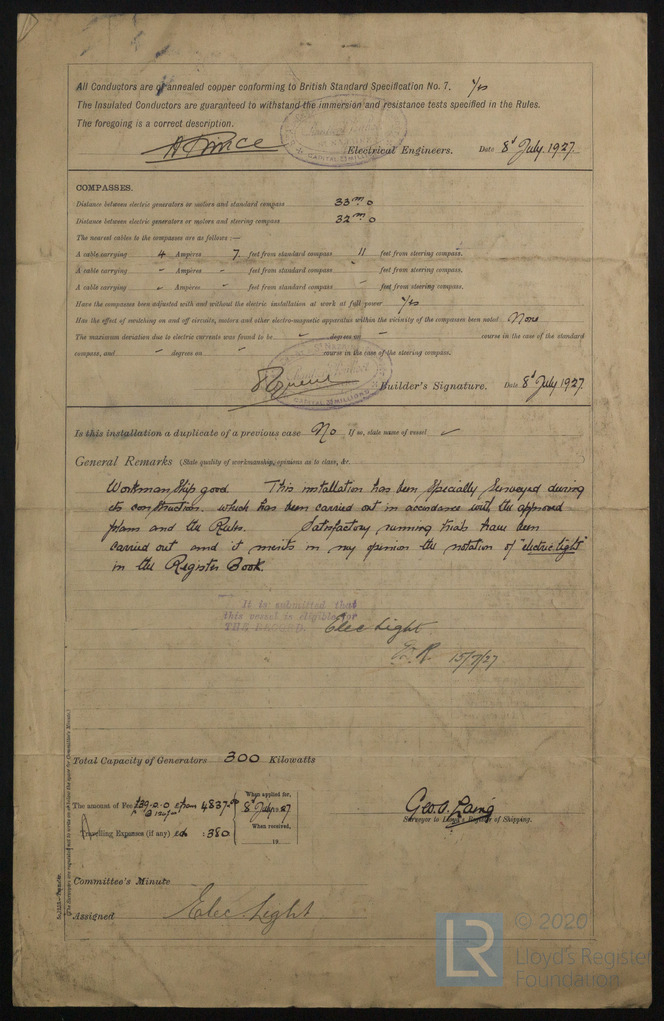 All Conductors are of annealed copper conforming to British Standard Specification No. 7. Yes
The Insulated Conductors are guaranteed to withstand the immersion and resistance tests specified in the Rules.
The foregoing is a correct description.
Electrical Engineers. Date 8th July 1927.
CAPITAL MILLIONS
COMPASSES.
Distance between electric generators or motors and standard compass 33 m 0
Distance between electric generators or motors and steering compass 32 m 0
The nearest cables to the compasses are as follows :—
A cable carrying 4 Ampères 7 feet from standard compass 11 feet from steering compass.
A cable carrying " Ampères " feet from standard compass " feet from steering compass.
A cable carrying " Ampères " feet from standard compass " feet from steering compass.
Have the compasses been adjusted with and without the electric installation at work at full power Yes
Has the effect of switching on and off circuits, motors and other electro-magnetic apparatus within the vicinity of the compasses been noted None
The maximum deviation due to electric currents was found to be " degrees on " course in the case of the standard
compass, and " degrees on " course in the case of the steering compass.
CAPITAL MILLIONS
Builder's Signature. Date 8th July 1927.
Is this installation a duplicate of a previous case No If so, state name of vessel
General Remarks (State quality of workmanship, opinions as to class, &c.
Workmanship good This installation has been specially surveyed during
its construction. which has been carried out in accordance with the approved
plans and the Rules. Satisfactory running trials have been
carried out and it merits in my opinion the notation of "electric light"
in the Register Book.
It is submitted that
this vessel is eligible for
THE RECORD. Elec Light
15/7/27
Total Capacity of Generators 300 Kilowatts
The amount of Fee £39.0.0 4837
When applied for,
8th July 1927
Travelling Expenses (if any) : 380
When received,
19
Geo. A. Laing
Surveyor to Lloyd's Register of Shipping.
Committee's Minute
Assigned Elec Light
LR © 2020
Lloyd's Register
Foundation